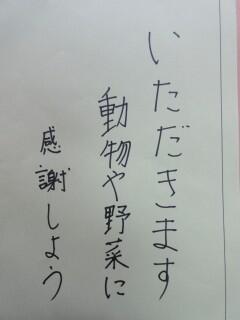 いただきます
動物や野菜に
感謝しよう